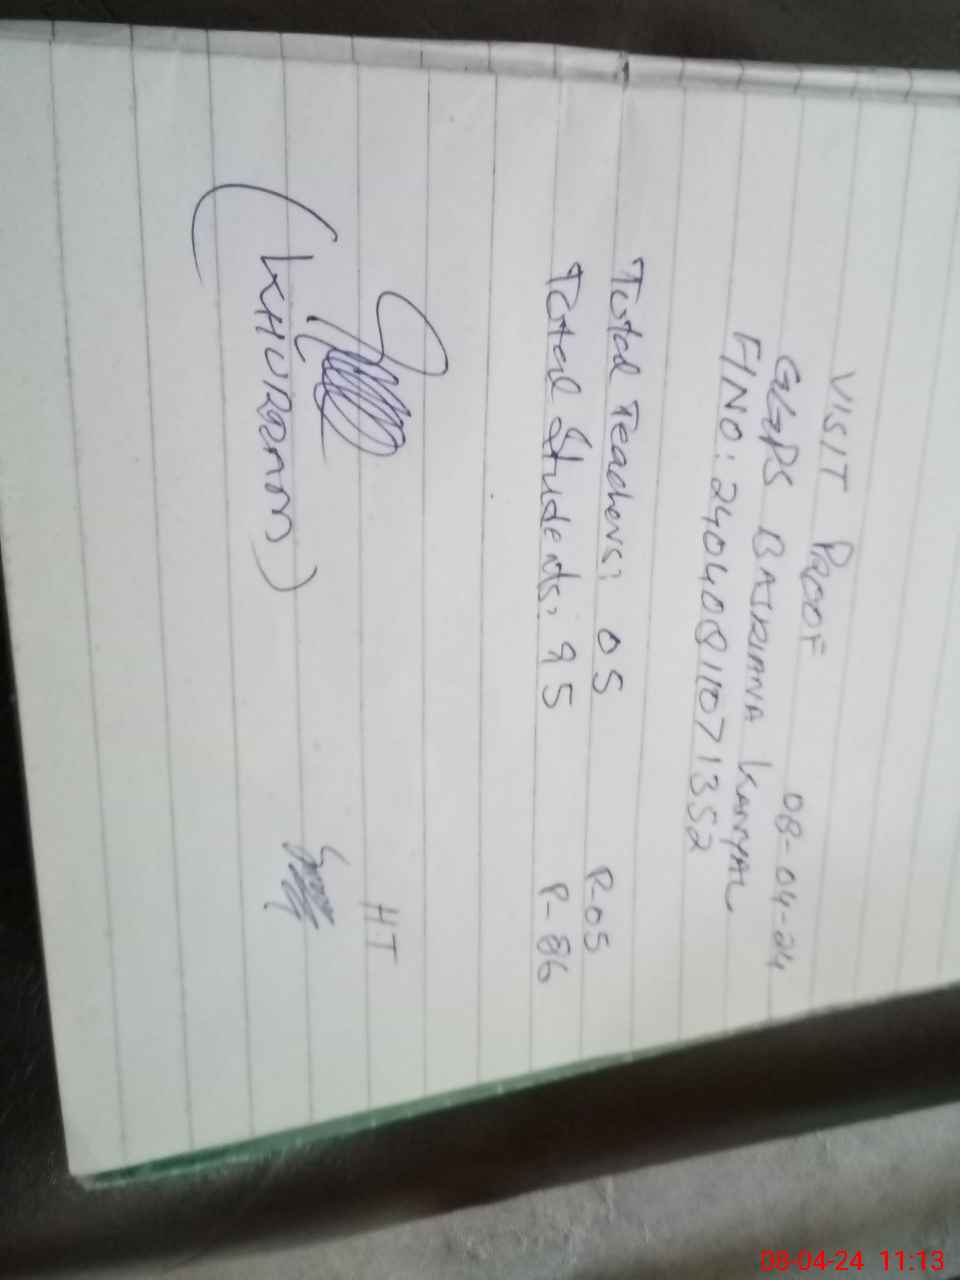 VISIT PROOF 08-04-24
GGPS BAJRIANA KANYAL
F/NO: 24040811071352
Total Teachers: 05 P-05
Total Students: 95 P-86
HT
(KHURRAM)
08-04-24 11:13